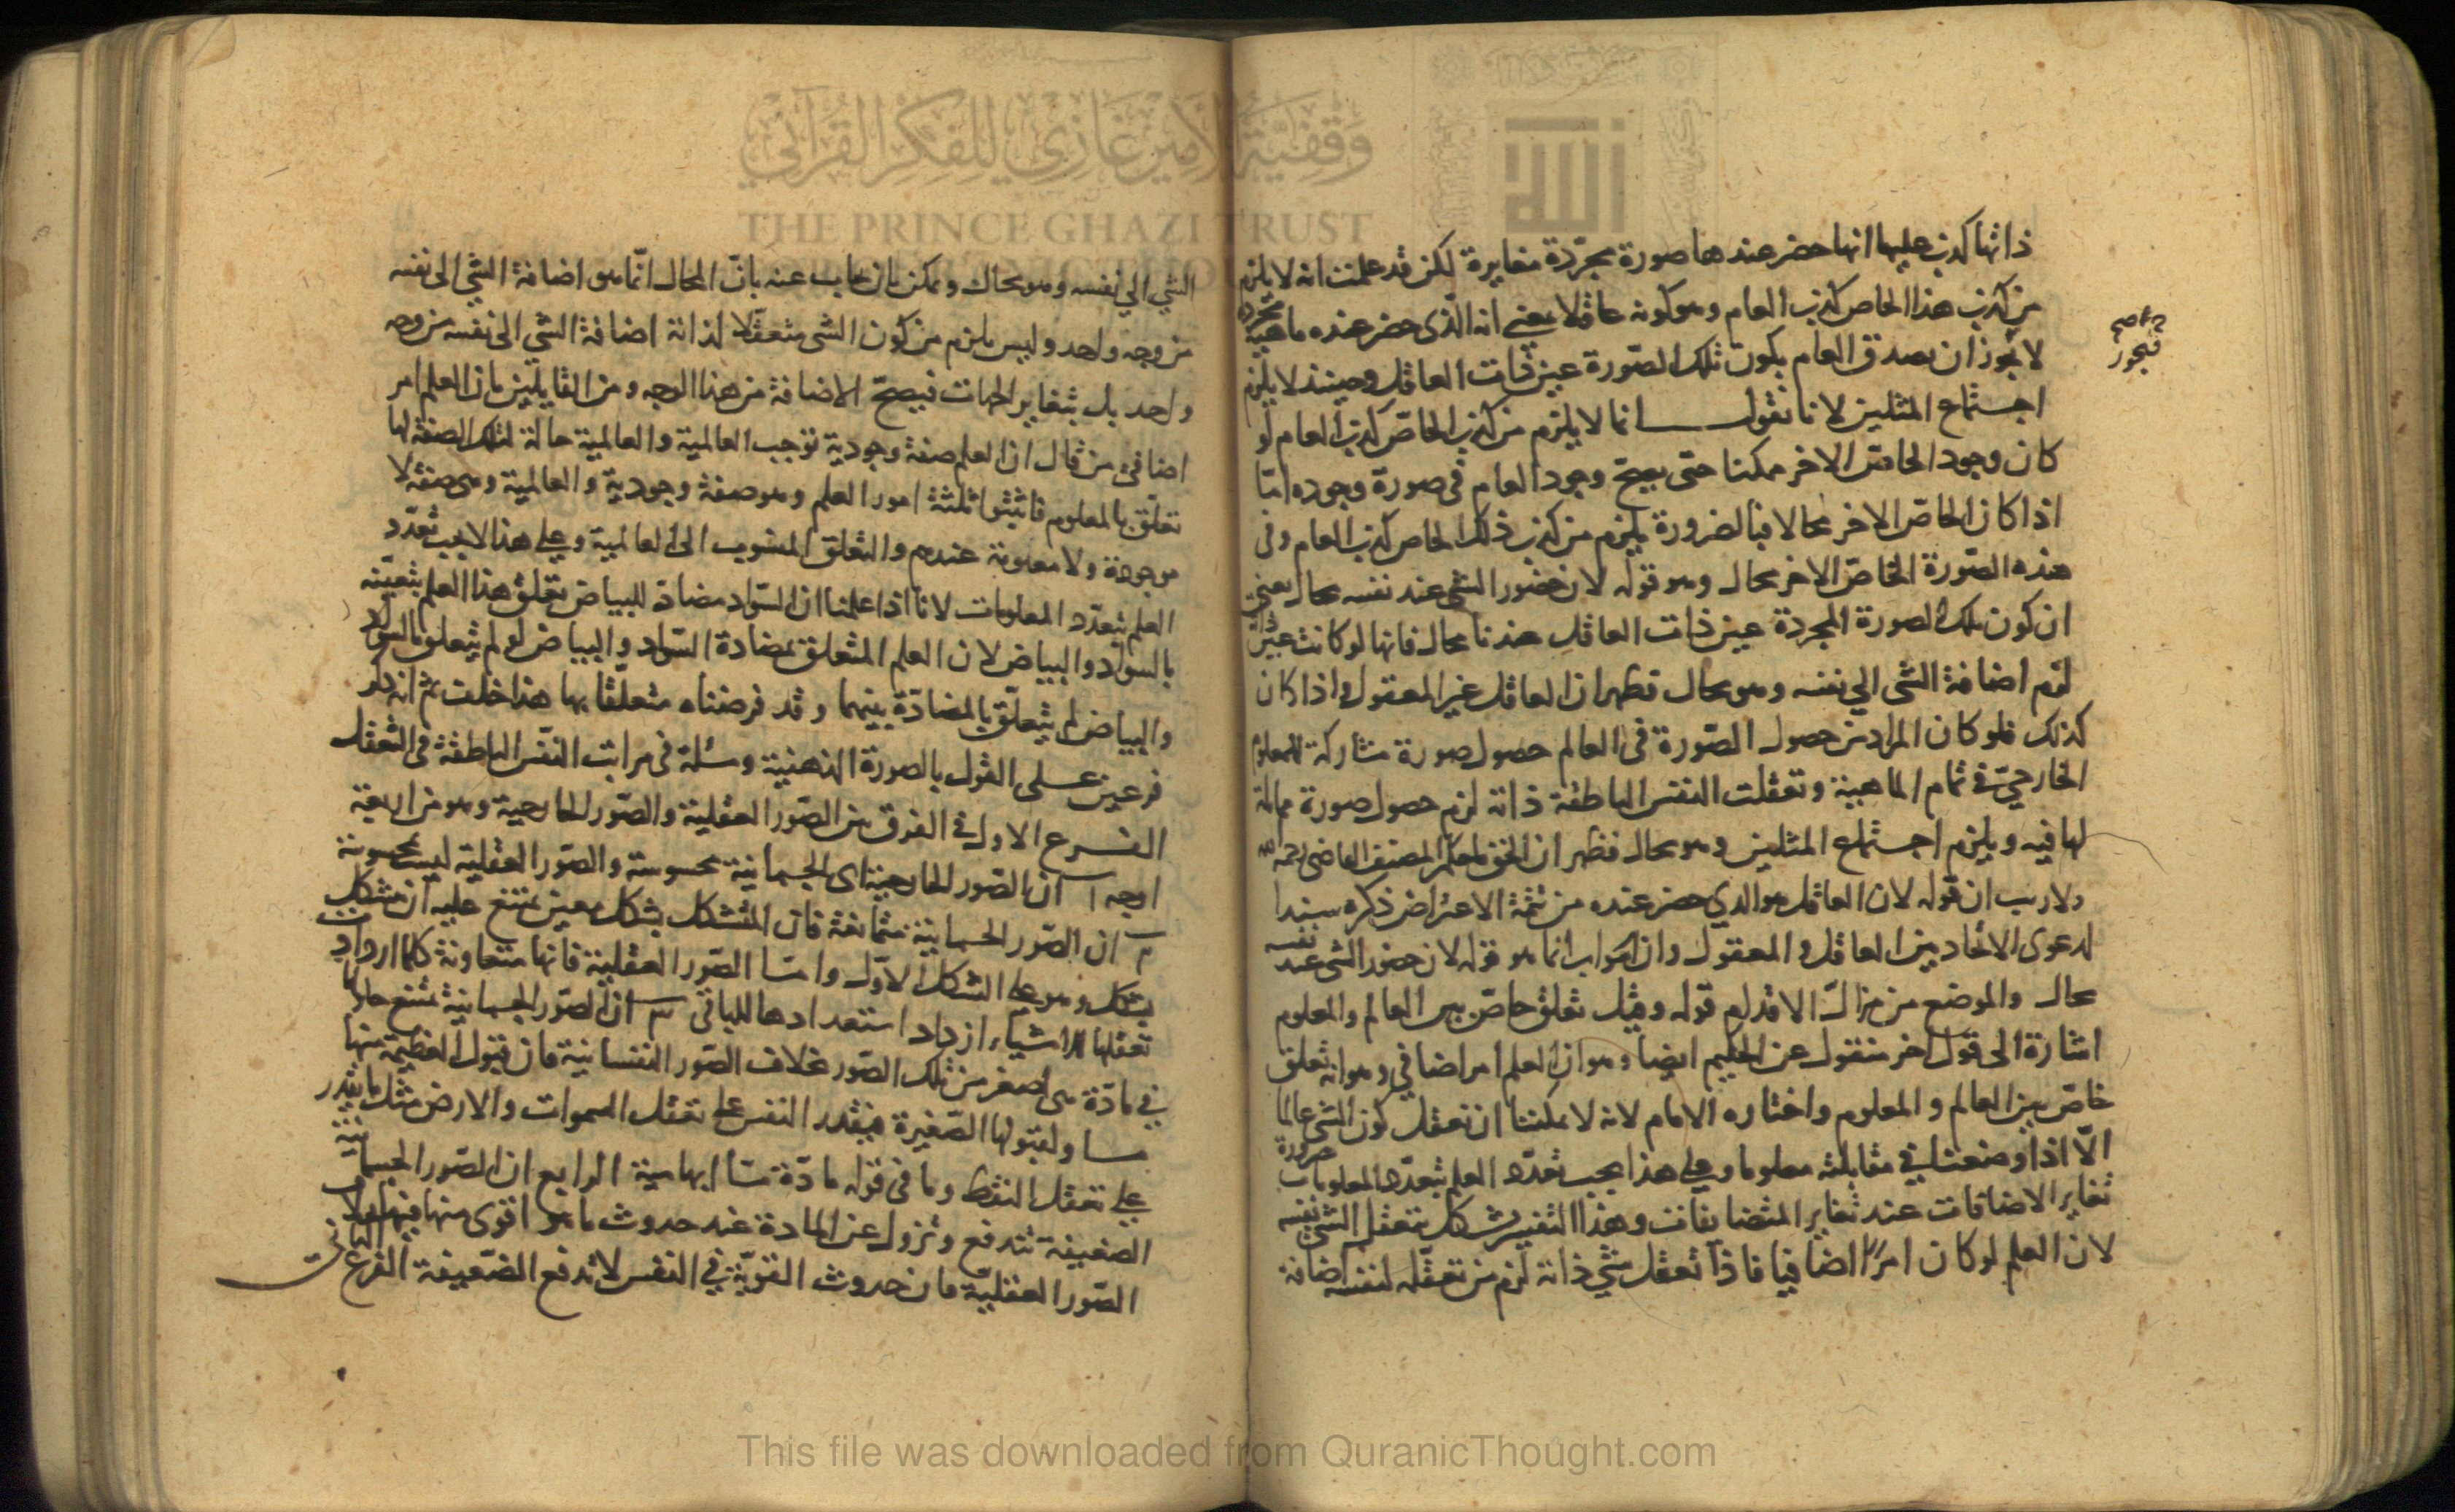 ذاتها كذب عليها انها حضر عندها صورة مجردة مغايرة لكن قد علمت انه لا يلزم
من كذب هذا الخاص كذب العام وهو كونه عاقلا بمعنى انه الذى حضر عنده ماهية مجردة
لا يجوز ان يصدق العام بكون تلك الصورة عين ذات العاقل وحينئذ لا يلزم
فيجوز
اجتماع المثلين لانا نقول انما لا يلزم من كذب الخاص كذب العام لو
كان وجود الخاص الاخر ممكنا حتى يصح وجود العام فى صورة وجوده امّا
اذا كان الخاص الاخر محالا فبالضرورة يلزم من كذب ذلك الخاص كذب العام وفى
هذه الصورة الخاص الاخر محال وهو قوله لان حضور الشى عند نفسه محال يعنى
ان كون تلك الصورة المجردة عين ذات العاقل عندنا محال فانها لو كانت عين
لزم اضافة الشى الى نفسه وهو محال فظهر ان العاقل غير المعقول واذا كان
كذلك فلو كان المراد من حصول الصورة فى العالم حصول صورة مشاركة للمعلوم
الخارجىّ فى تمام الماهية وتعقلت النفس الناطقة ذاته لزم حصول صورة مماثلة
لها فيه ويلزم اجتماع المثلين وهو محال فظهر ان الحق ما حكم المصنف القاضى رحمه الله
ولا ريب ان قوله لان العاقل هو الذي حضر عنده من تتمة الاعتراض ذكره سندا
لدعوى الاتحاد بين العاقل والمعقول وان الجواب انما هو قوله لان حضور الشى عند نفسه
محال والموضع من مزالّ الاقدام قوله وقيل تعلق خاصّ بين العالم والمعلوم
اشارة الى قول اخر منقول عن الحكيم ايضا وهو ان العلم امر اضافي وهو انه تعلق
خاصّ بين العالم والمعلوم واختاره الامام لانه لا يمكننا ان نتعقل كون الشى عالما
الّا اذا وضعنا في مقابلته معلوما وعلى هذا يجب تعدّد العلم بتعدّد المعلومات ضرورة
تغاير الاضافات عند تغاير المتضايفات وهذا التفسير يشكل بتعقل الشى نفسه
لان العلم لو كان امرًا اضافيا فاذا تعقل شي ذاته لزم من تعقّله لنفسه اضافة
الشي الي نفسه وهو محال ويمكن بان يجاب عنه بانّ المحال انّما هو اضافة الشي الى نفسه
من وجه واحد وليس يلزم من كون الشى متعقّلا لذاته اضافة الشى الى نفسه من وجه
واحد بل بتغاير الجهات فيصحّ الاضافة من هذا الوجه ومن القايلين بان العلم امر
اضافىّ من قال ان العلم صفة وجودية توجب العالمية والعالمية حالة لتلك الصفة لها
تعلّق بالمعلوم فاثبتوا ثلثة امور العلم وهو صفة وجودية والعالمية وهى صفة لا
موجودة ولا معدومة عندهم والتعلق المنسوب الى العالمية وعلى هذا لا يجب تعدّد
العلم بتعدّد المعلومات لانا اذا علمنا ان السواد مضادّ للبياض تعلق هذا العلم بعينه
بالسواد والبياض لان العلم المتعلق بمضادة السّواد والبياض لو لم يتعلق بالسواد
والبياض لم يتعلّق بالمضادّة بينهما وقد فرضناه متعلقا بها هذا خلف ثم انه ذكر
فرعين على القول بالصورة الذهنية ومسئلة فى مراتب النفس الناطقة فى التعقل
الفرع الاول فى الفرق بين الصّور العقلية والصّور الخارجية وهو من اربعة
اوجه ا ان الصّور الخارجية اى الجسمانية محسوسة والصّور العقلية ليست بمحسوسة
ب ان الصّور الجسمانية متمانعة فان المتشكل بشكل معين يمتنع عليه ان يتشكل
بشكل وهو على الشكل الاوّل وامّا الصّور العقلية فانها متعاونة كلما ازدادت
تعقلها للاشياء ازداد استعدادها للباقى ج ان الصّور الجسمانية يمتنع حلولها
في مادّة هى اصغر من تلك الصّور بخلاف الصّور النفسانية فان قبول العظيمة منها
مساو لقبولها الصّغيرة فيقدر النفس على تعقل السموات والارض مثل ما يقدر
على تعقل النقطة وما فى قوله مادّة مّا ابهامية الرابع ان الصّور الجسمانية
الضعيفة تندفع وتزول عن المادة عند حدوث ما هو اقوى منها فيها بخلاف
الصّور العقليّة فان حدوث القويّة في النفس لا تدفع الضّعيفة الفرع الثانى
وقفية الأمير غازي للفكر القرآني
THE PRINCE GHAZI TRUST
This file was downloaded from QuranicThought.com